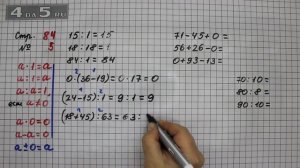 4DA5.RU
Стр. 84
№ 5
а·1=а
а:1=а
а:а=1
если а≠0
а·0=0
а-а=0
а±0=а
15:1=15
18:18=1
84:1=84
0·(36-19)=0·17=0
(24-15):1=9:1=9
(18+45):63=63:
71-45+0=
56+26-0=
0+93-13=
70:10=
80:8=
90:10=